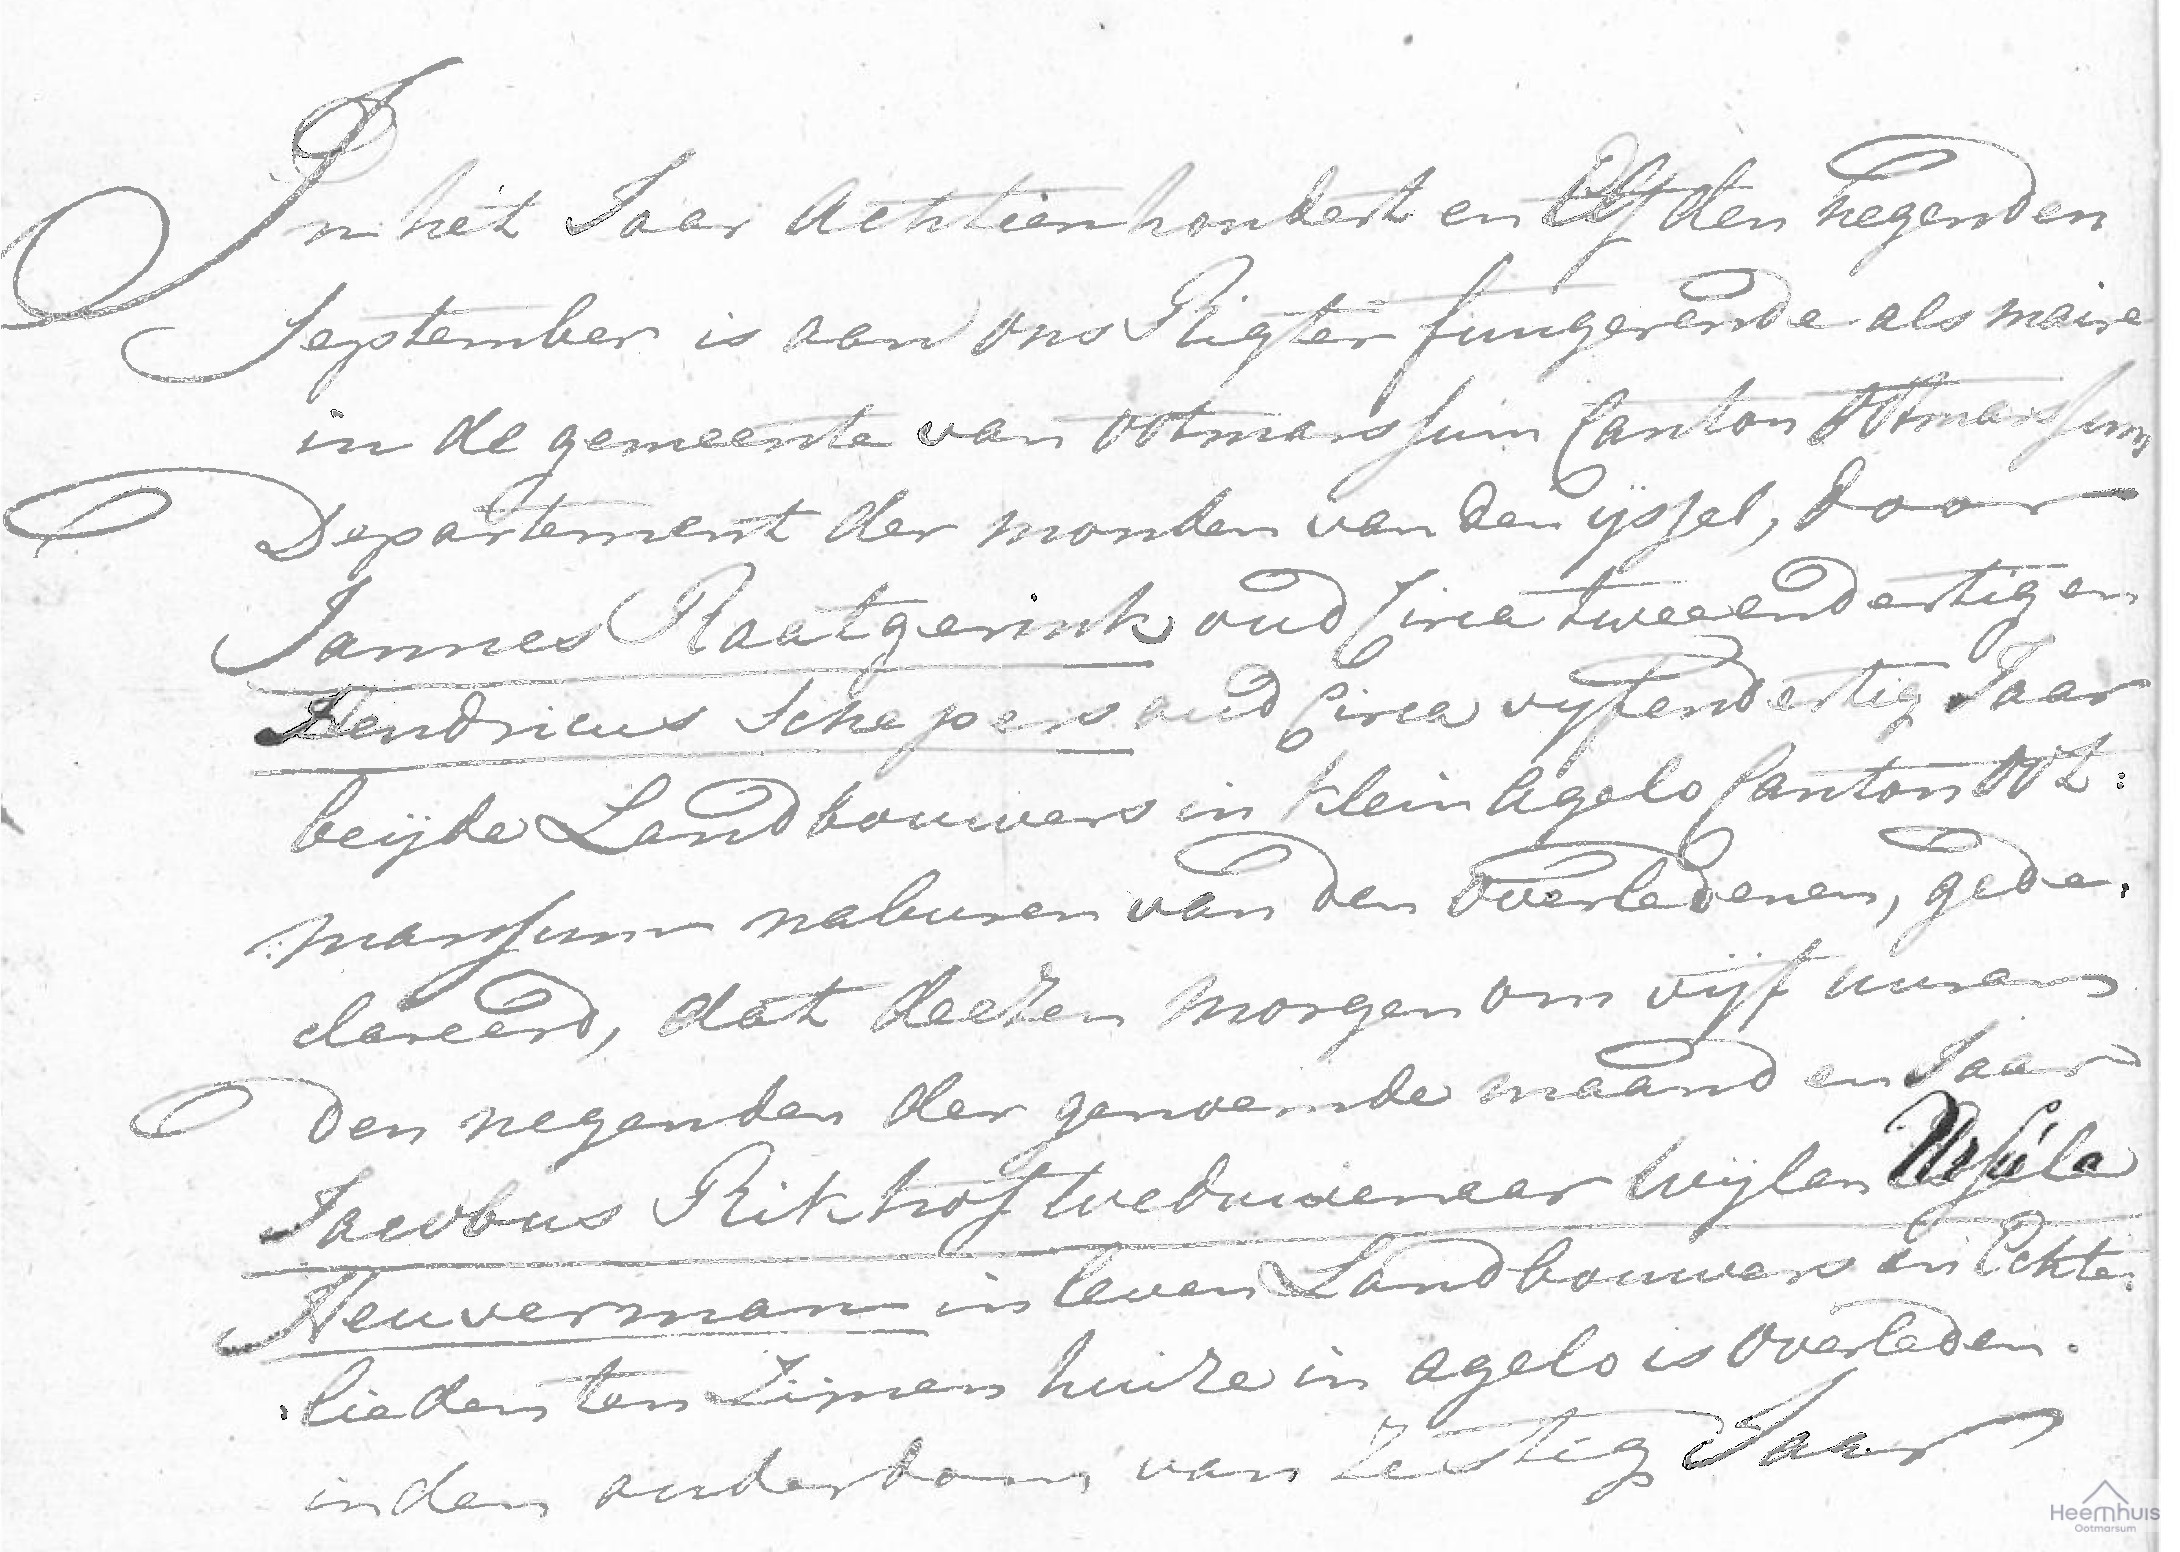 In het Jaar Achttienhondert en Elf den negenden
September is aan ons Rigter fungerende als maire
in de gemeente van Ootmarssum Canton Ootmarssum
Departement der monden van den ijssel, door
Jannes Raatgerink oud Circa tweeendertig en
Hendricus Schepers oud Circa vyfendertig Jaar
beijde Landbouwers in klein Agelo Canton Oot:
:marssum naburen van den Overledenen, gede.
clareerd, dat deezen morgen om vijf uuren
den negenden der genoemde maand en Jaar
Jacobus Rikhof weduwenaar wijlen Ursula
Neuverman in leven Landbouwers en Echte.
.lieden ten Zijnen huize in agelo is Overleden.
in den ouderdom van Zestig Jaar
Heemhuis
Ootmarsum